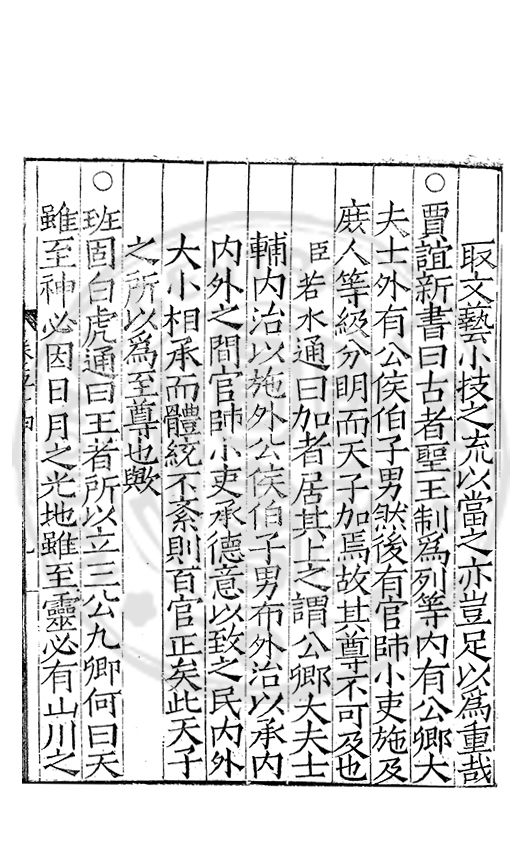 取文藝小技之流以當之亦豈足以爲重哉
○賈誼新書曰古者聖王制爲列等内有公卿大
夫士外有公侯伯子男然後有官師小吏施及
庶人等級分明而天子加焉故其尊不可及也
臣若水通曰加者居其上之謂公卿大夫士
輔内治以施外公侯伯子男布外治以承内
内外之間官師小吏承德意以致之民内外
大小相承而體統不紊則百官正矣此天子
之所以爲至尊也歟
○班固白虎通曰王者所以立三公九卿何曰天
雖至神必因日月之光地雖至靈必有山川之